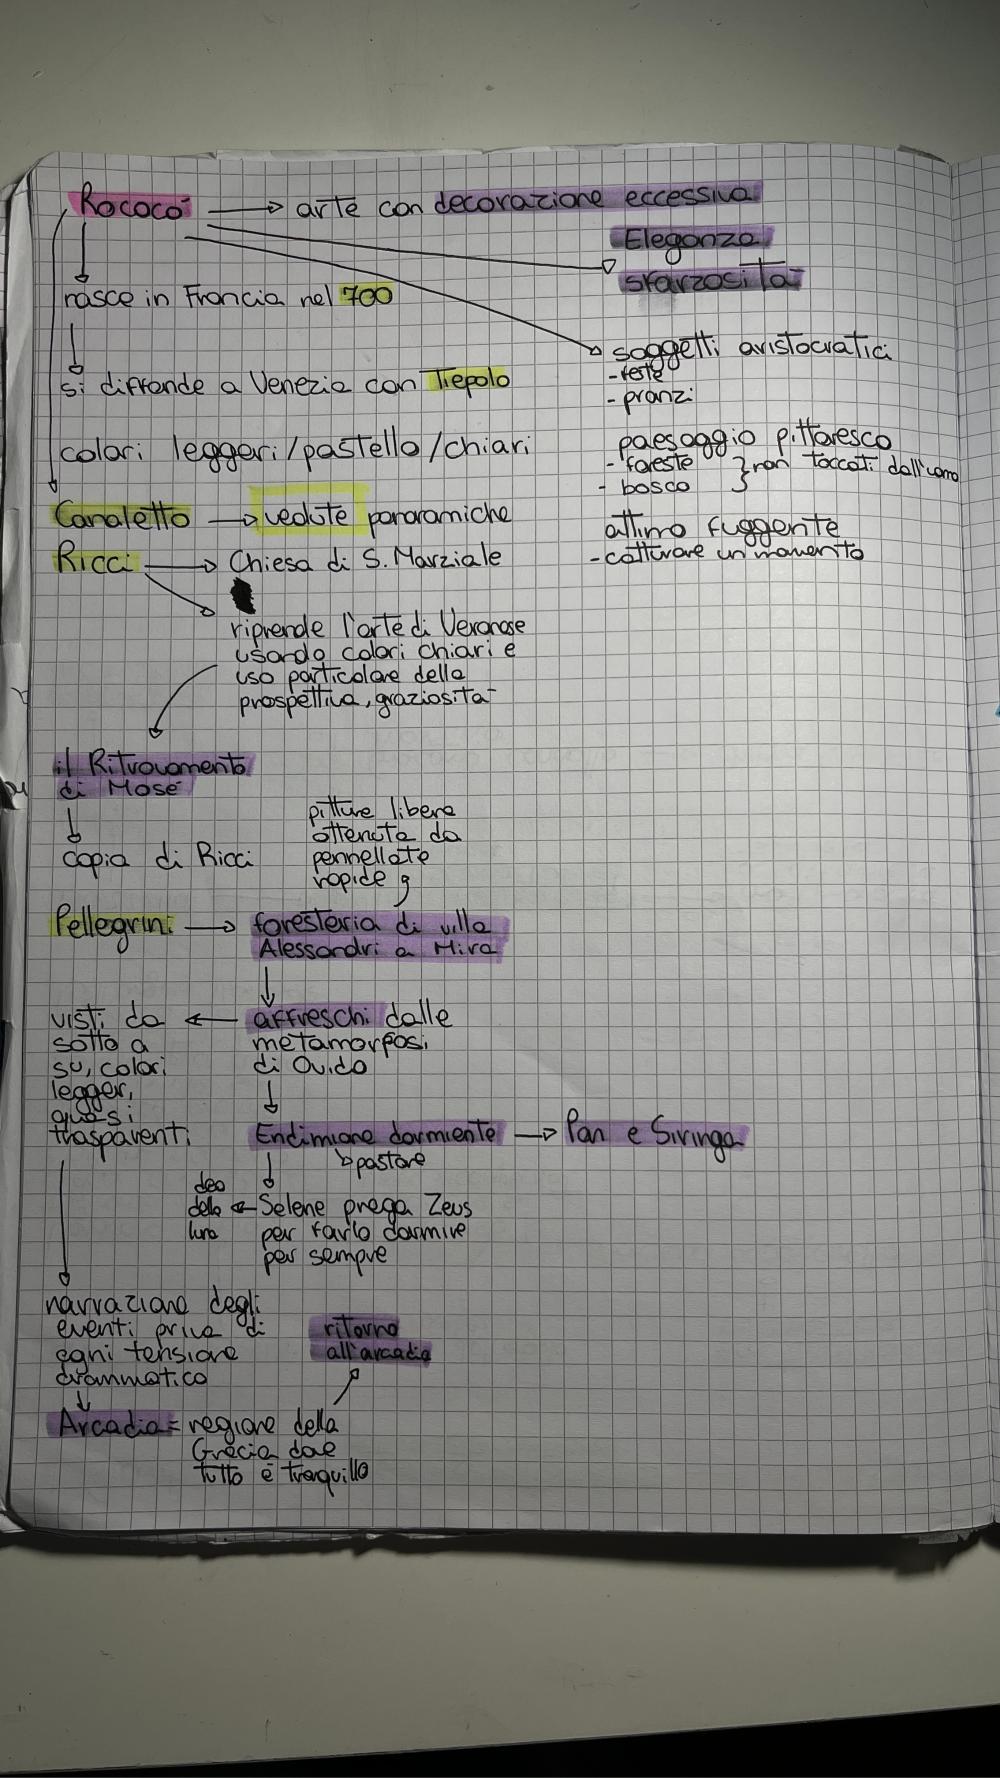 Rococò → arte con decorazione eccessiva
Eleganza
sfarzosità
nasce in Francia nel 700
soggetti aristocratici
- feste
- pranzi
si diffonde a Venezia con Tiepolo
colori leggeri/pastello/chiari
paesaggio pittoresco
- foreste } non toccati dall'uomo
- bosco
Canaletto → vedute panoramiche
attimo fuggente
- catturare un momento
Ricci → Chiesa di S. Marziale
riprende l'arte di Veronese
usando colori chiari e
uso particolare della
prospettiva, graziosità
il Ritrovamento
di Mosè
copia di Ricci
pitture libera
ottenuta da
pennellate
rapide
Pellegrini → foresteria di villa
Alessandri a Mira
affreschi dalle
metamorfosi
di Ovidio
visti da
sotto a
su, colori
leggeri,
quasi
trasparenti
Endimione dormiente → Pan e Siringa
pastore
Selene prega Zeus
per farlo dormire
per sempre
dea
della
luna
narrazione degli
eventi priva di
ogni tensione
drammatica
ritorno
all'arcadia
Arcadia = regione della
Grecia dove
tutto è tranquillo